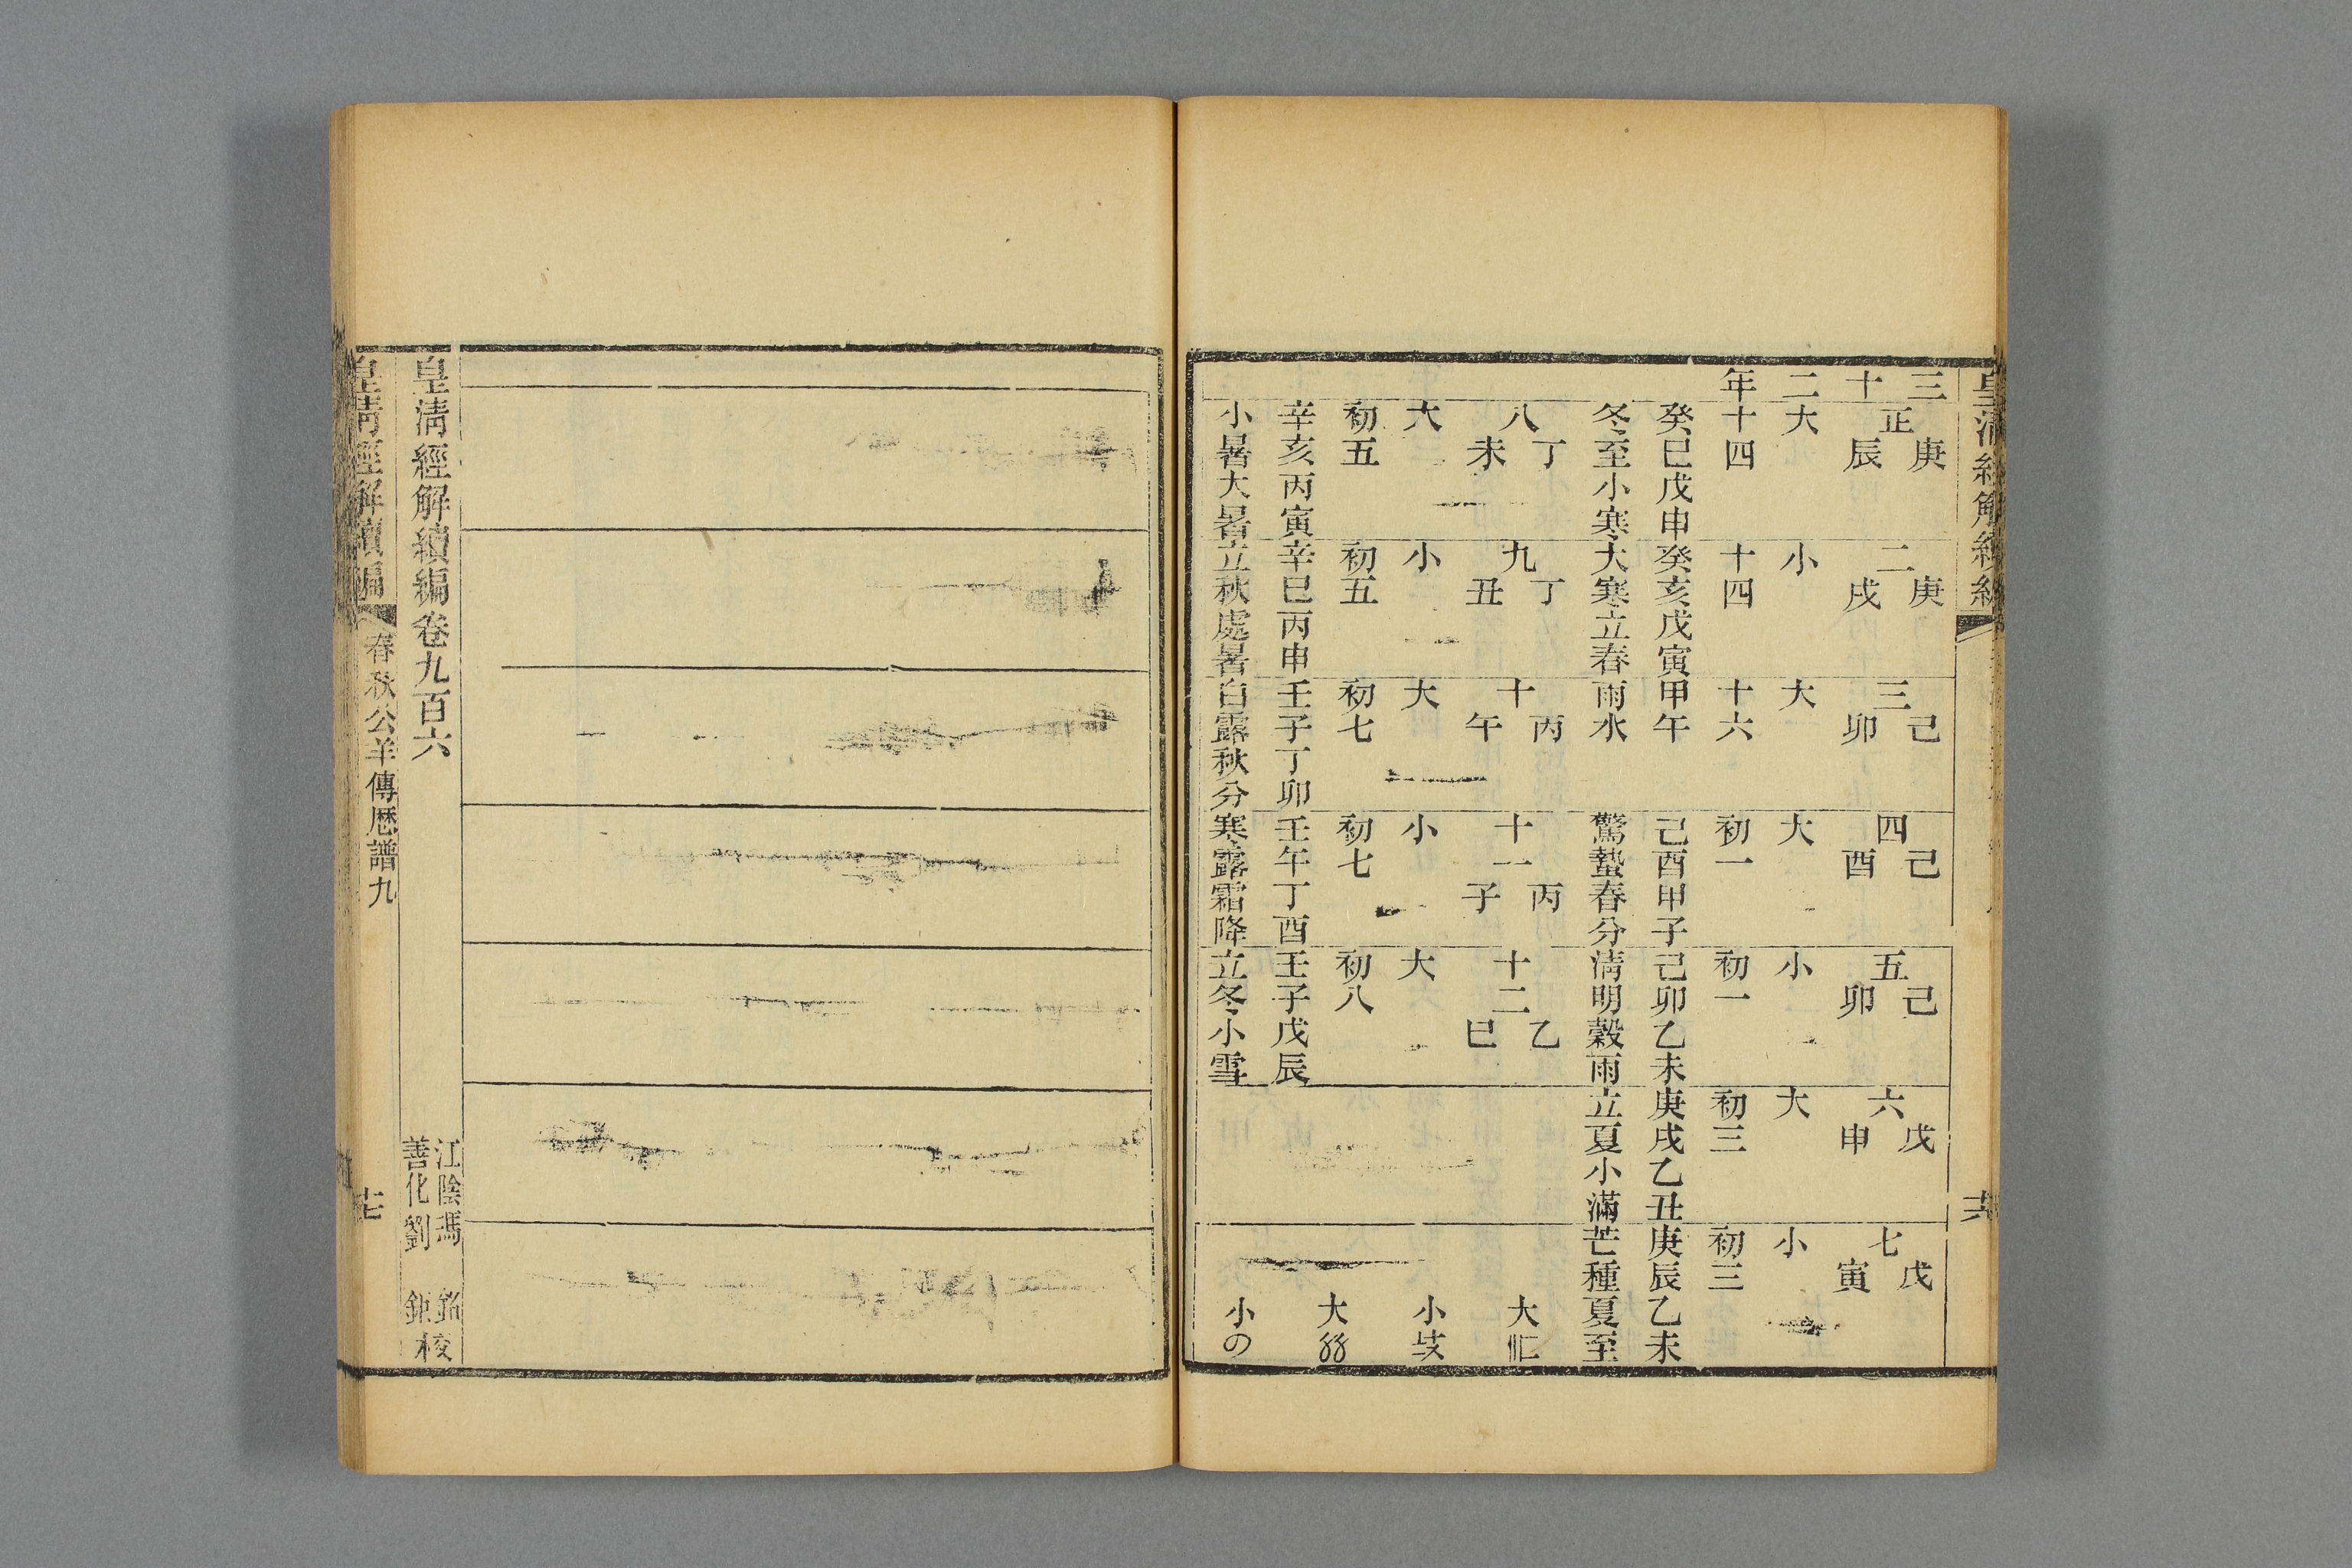 皇清經解續編
三十二年
正 庚辰
大
十四
癸巳戊申
冬至小寒
二 庚戌
小
十四
癸亥戊寅
大寒立春
三 己卯
大
十六
甲午
雨水
四 己酉
大
初一
己酉甲子
驚蟄春分
五 己卯
小
初一
己卯乙未
清明穀雨
六 戊申
大
初三
庚戌乙丑
立夏小滿
七 戊寅
小
初三
庚辰乙未
芒種夏至
八 丁未
大
初五
辛亥丙寅
小暑大暑
九 丁丑
小
初五
辛巳丙申
立秋處暑
十 丙午
大
初七
壬子丁卯
白露秋分
十一 丙子
小
初七
壬午丁酉
寒露霜降
十二 乙巳
大
初八
壬子戊辰
立冬小雪
大
小
大
小
皇清經解續編卷九百六
江陰馮 銘
善化劉 鉅校
皇清經解續編 春秋公羊傳厯譜九